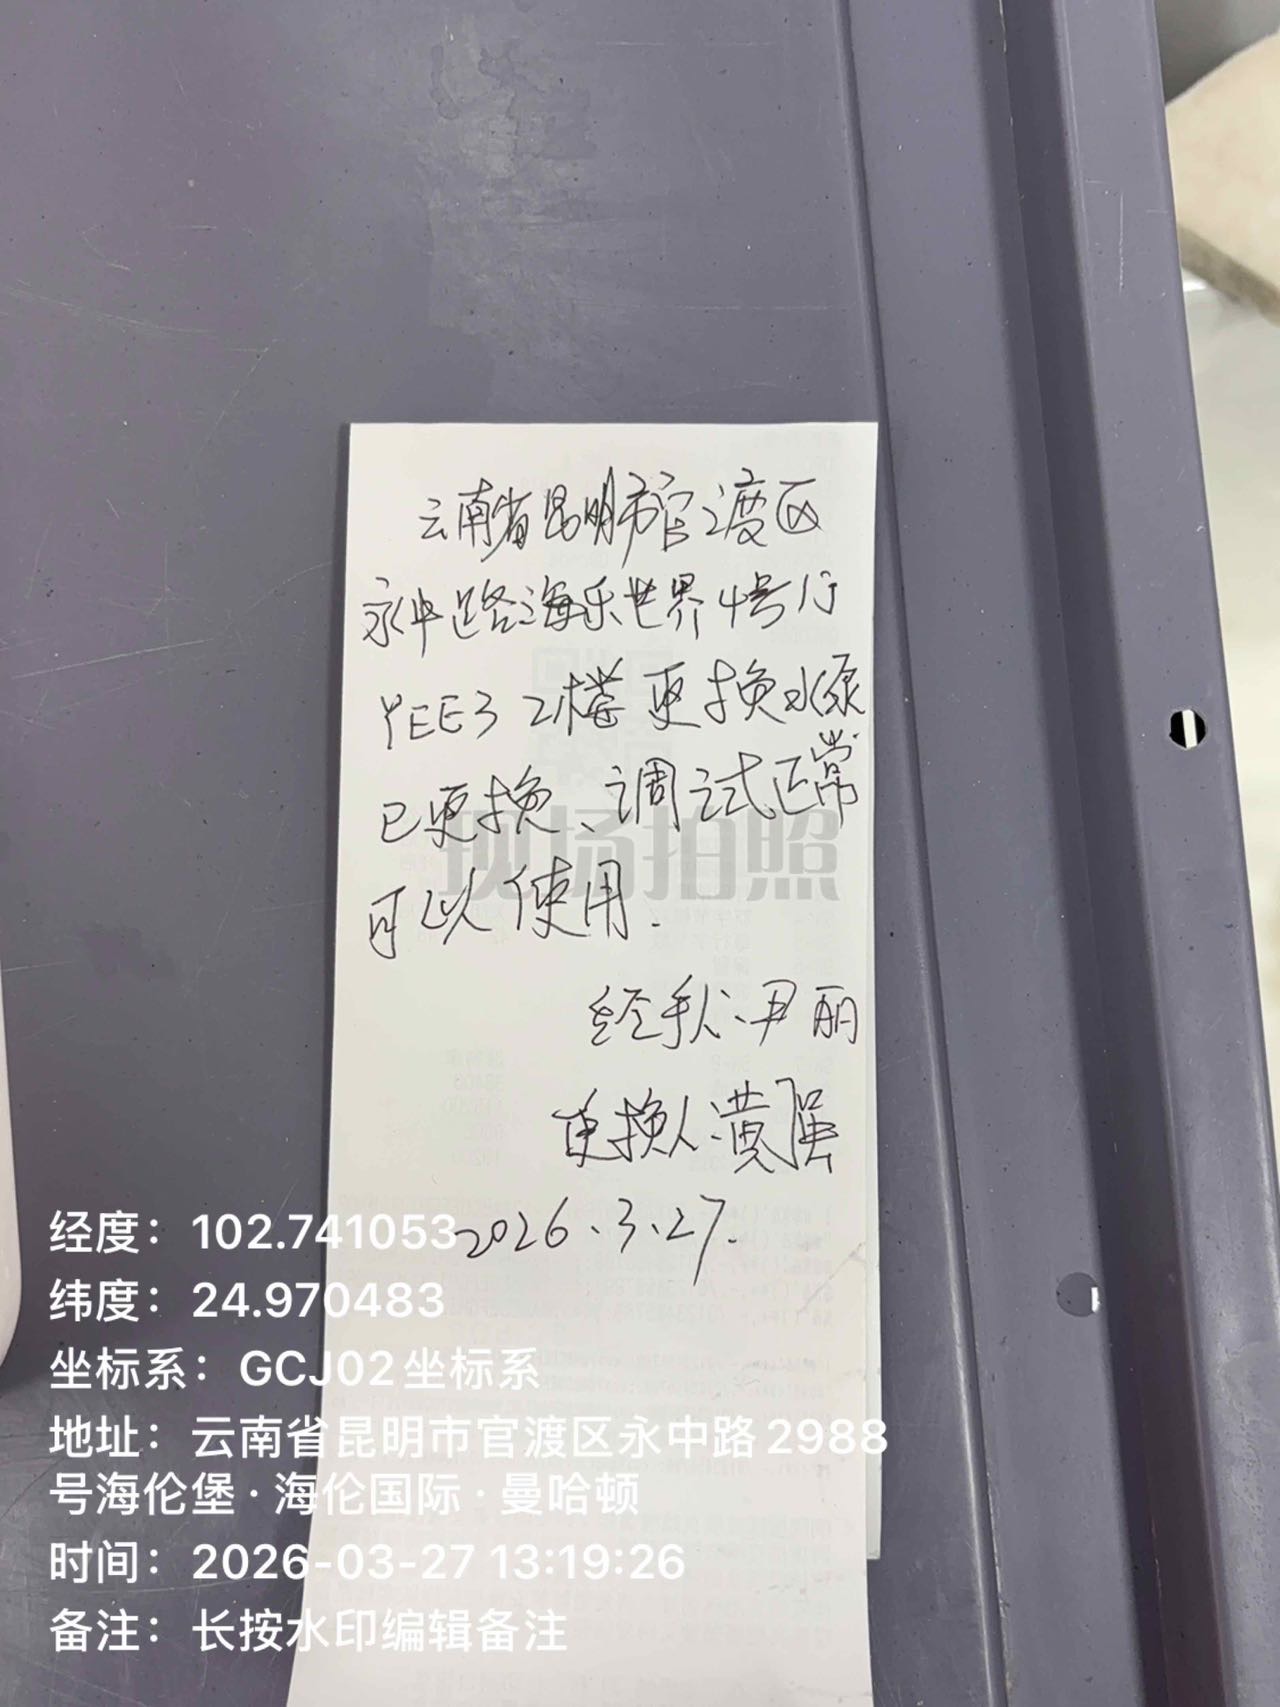 云南省昆明市官渡区
永中路海乐世界4号门
YEE3 2楼更换水泵
已更换、调试正常
可以使用.
现场拍照
经手人:尹丽
更换人:黄强
2026.3.27.
经度：102.741053
纬度：24.970483
坐标系：GCJ02坐标系
地址：云南省昆明市官渡区永中路2988
号海伦堡·海伦国际·曼哈顿
时间：2026-03-27 13:19:26
备注：长按水印编辑备注